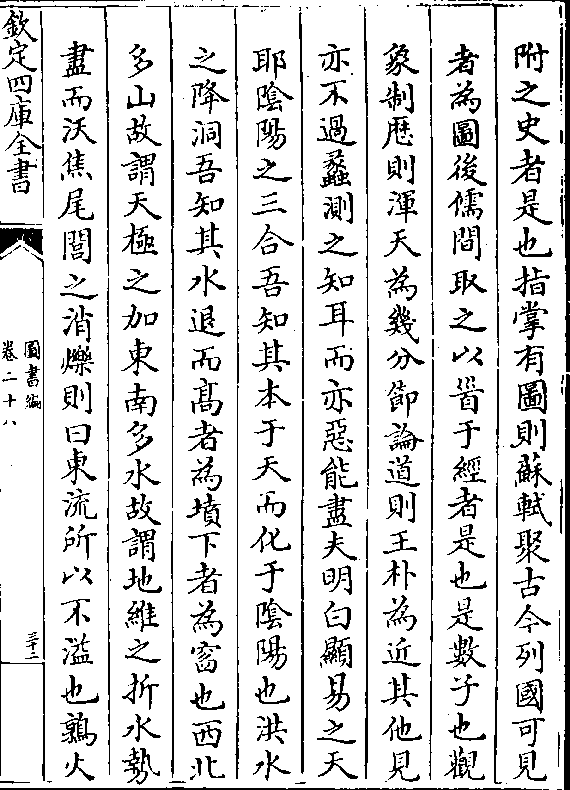 附之史者是也指掌有圖則蘇軾聚古今列國可見
者為圖後儒間取之以晉于經者是也是數子也觀
象制歷則渾天為幾分節論道則王朴為近其他見
亦不過蠡測之知耳而亦惡能盡夫明白顯易之天
耶陰陽之三合吾知其本于天而化于陰陽也洪水
之降洞吾知其水退而髙者為墳下者為窗也西北
多山故謂天極之加東南多水故謂地維之折水勢
盡而沃焦尾閭之消爍則曰東流所以不溢也鶉火
欽定四庫全書
圖書編
卷二十八
三十二